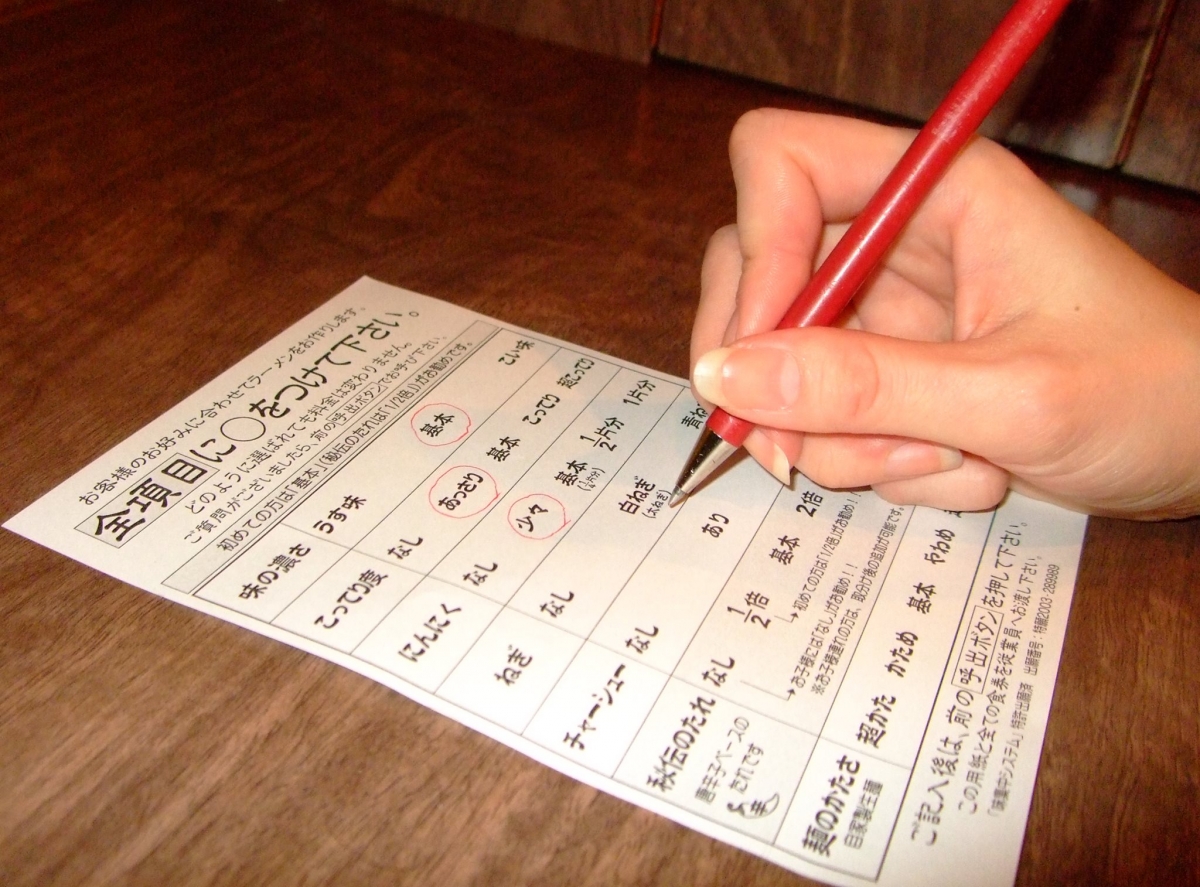 お客様のお好みに合わせてラーメンをお作りします。
全項目に○をつけて下さい。
どのように選ばれても料金は変わりません。
ご質問がございましたら、前の呼出ボタンでお呼び下さい。
初めての方は「基本」(秘伝のたれは「1/2倍」)がお勧めです。
味の濃さ うす味 基本 こい味
こってり度 なし あっさり 基本 こってり 超こってり
にんにく なし 少々 基本 (1/4片分) 1/2片分 1片分
ねぎ なし 白ねぎ (太ねぎ) 青ね
チャーシュー なし あり
秘伝のたれ なし 1/2倍 基本 2倍
唐辛子ベースの
たれです
初めての方は「1/2倍」がお勧め!!
お子様には「なし」がお勧め!!
※お子様連れの方は、取分け後の追加が可能です。
麺のかたさ 超かた かため 基本 やわめ
自家製生麺
ご記入後は、前の呼出ボタンを押して下さい。
この用紙と全ての食券を従業員へお渡し下さい。
「味集中システム」特許出願済 出願番号:特願2003-289989